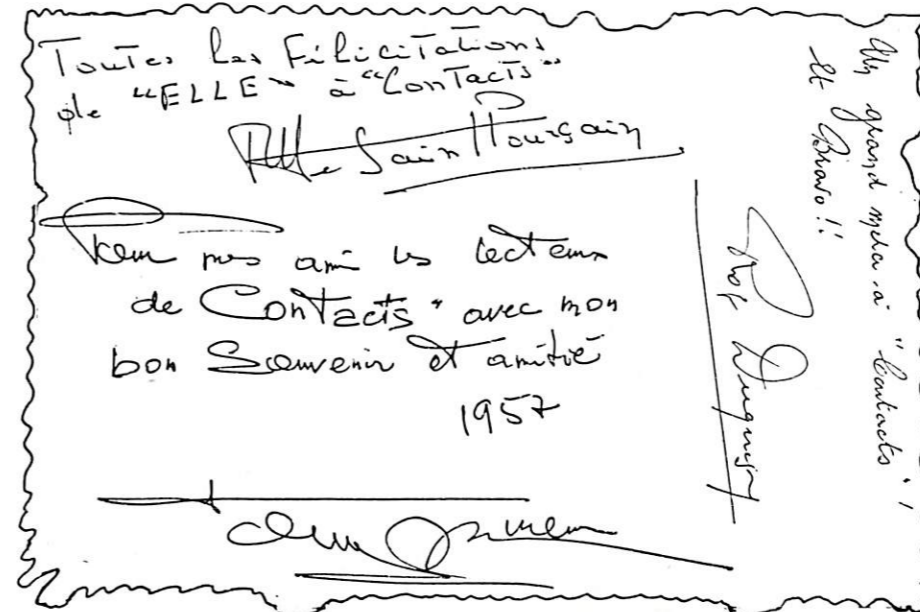 Toutes les Félicitations
de "ELLE" à "Contacts"
de Saint Pourçain
Pour mes amis les lecteurs
de Contacts" avec mon
bon Souvenir et amitié
1957
Un grand à "Contacts"!
et Bravo!!
Prof